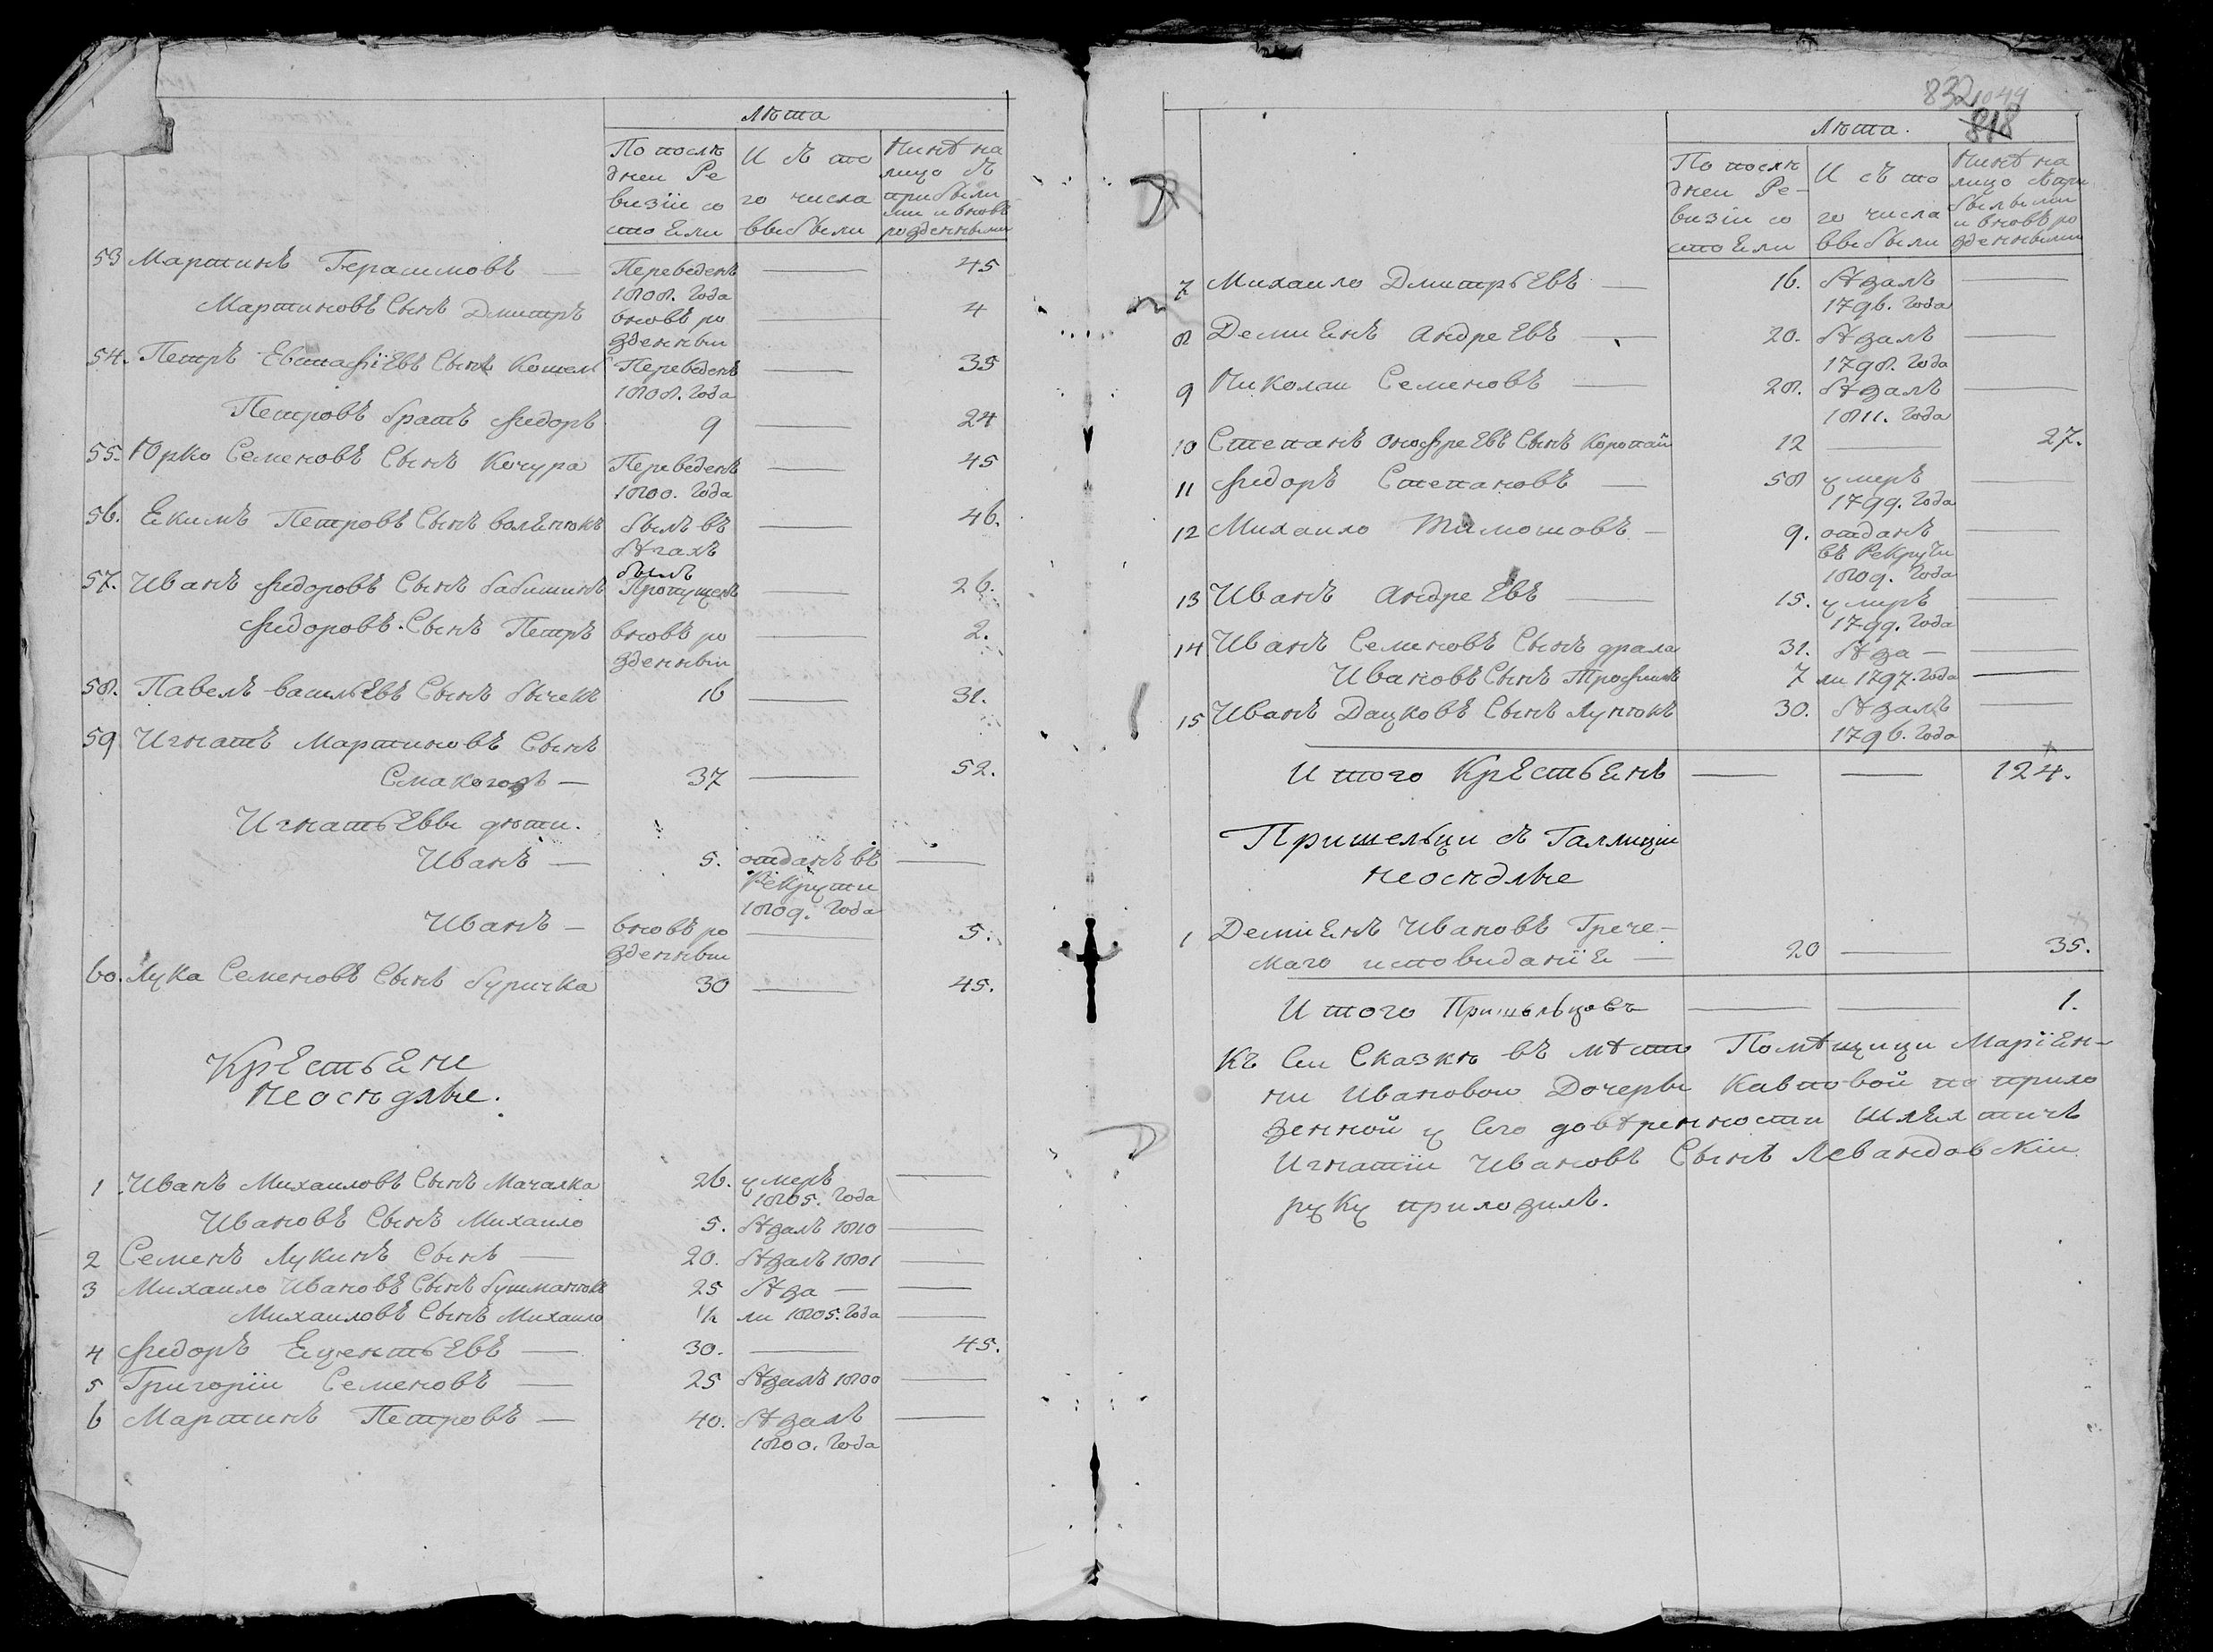 Лѣта
По послѣ И съ то Нинѣ на
дней Ре лицо съ
визіи со го числа прибыли
стоЕли выбыли ми и вновь
рожденными
53 Мартинъ Герасимовъ — Переведенъ — 45
1808. года
Мартиновъ Сынъ Дмитръ вновь ро — 4
жденный
54. Петръ Евстафіевъ Сынъ Переведенъ — 35
1808. года
Петровъ братъ Федоръ 9 — 24
55. Юрко Семеновъ Сынъ Кочура Переведенъ — 45
1800. года
56. Екимъ Петровъ Сынъ былъ въ — 46.
бѣгахъ
57. Иванъ Федоровъ Сынъ бабишинъ былъ Пропущенъ — 26.
Федоровъ Сынъ Петръ вновь ро — 2.
жденный
58. Павелъ васильЕвъ Сынъ бычекъ 16 — 31.
59 Игнатъ Мартиновъ Сынъ
— 37 — 52.
ИгнатьЕвы дѣти.
Иванъ — 5. отданъ въ —
Рекрути
1809. года
Иванъ — вновь ро — 5.
жденный
60. Лука Семеновъ Сынъ буричка 30 — 45.
КрЕстьЕни
неосѣдлые.
1 Иванъ Михаиловъ Сынъ Мачалка 26. умеръ —
1805. года
Ивановъ Сынъ Михаило 5. бѣжалъ 1810 —
2 Семенъ Лукинъ Сынъ — 20. бѣжалъ 1801 —
3 Михаило Ивановъ Сынъ 25 бѣжа — —
Михаиловъ Сынъ Михаило ½ ли 1805. года —
4 Федоръ — 30. — 45.
5 Григоріи Семеновъ — 25 бѣжалъ 1800 —
6 Мартинъ Петровъ — 40. бѣжалъ —
1800. года
832 1044
818
Лѣта.
По послѣ И съ то Нинѣ на
дней Ре- лицо съ при
визіи со го числа былыми
стоЕли выбыли и вновь ро
жденными
7 Михаило ДмитрьЕвъ — 16. бѣжалъ —
1796. года
8 ДемиЕнъ АндреЕвъ — 20. бѣжалъ —
1798. года
9 Николаи Семеновъ — 28. бѣжалъ —
1811. года
10 Степанъ ОнофреЕвъ Сынъ Коропай 12 — 27.
11 Федоръ Степановъ — 58 умеръ —
1799. года
12 Михаило Тимошовъ — 9. отданъ —
въ Рекрути
1809. года
13 Иванъ АндреЕвъ — 15. умеръ —
1799. года
14 Иванъ Семеновъ Сынъ драла 31. бѣжа — —
Ивановъ Сынъ Трофимъ 7 ли 1797. года —
15 Иванъ Дацковъ Сынъ Лунюкъ 30. бѣжалъ —
1796. года
Итого КрЕстьЕнъ — — 124.
Пришельци съ Галлиціи
неосѣдлые
1 ДемиЕнъ Ивановъ Грече-
скаго исповиданіЕ — 20 — 35.
Итого Пришельцовъ — — 1.
Къ Сеи Сказкѣ въ мѣсто Помѣщици МаріЕн-
ни Ивановои Дочеры по прило
женной у Сего довѣренности ШлЕхтичъ
Игнатіи Ивановъ Сынъ Левандовскіи
руку приложилъ.